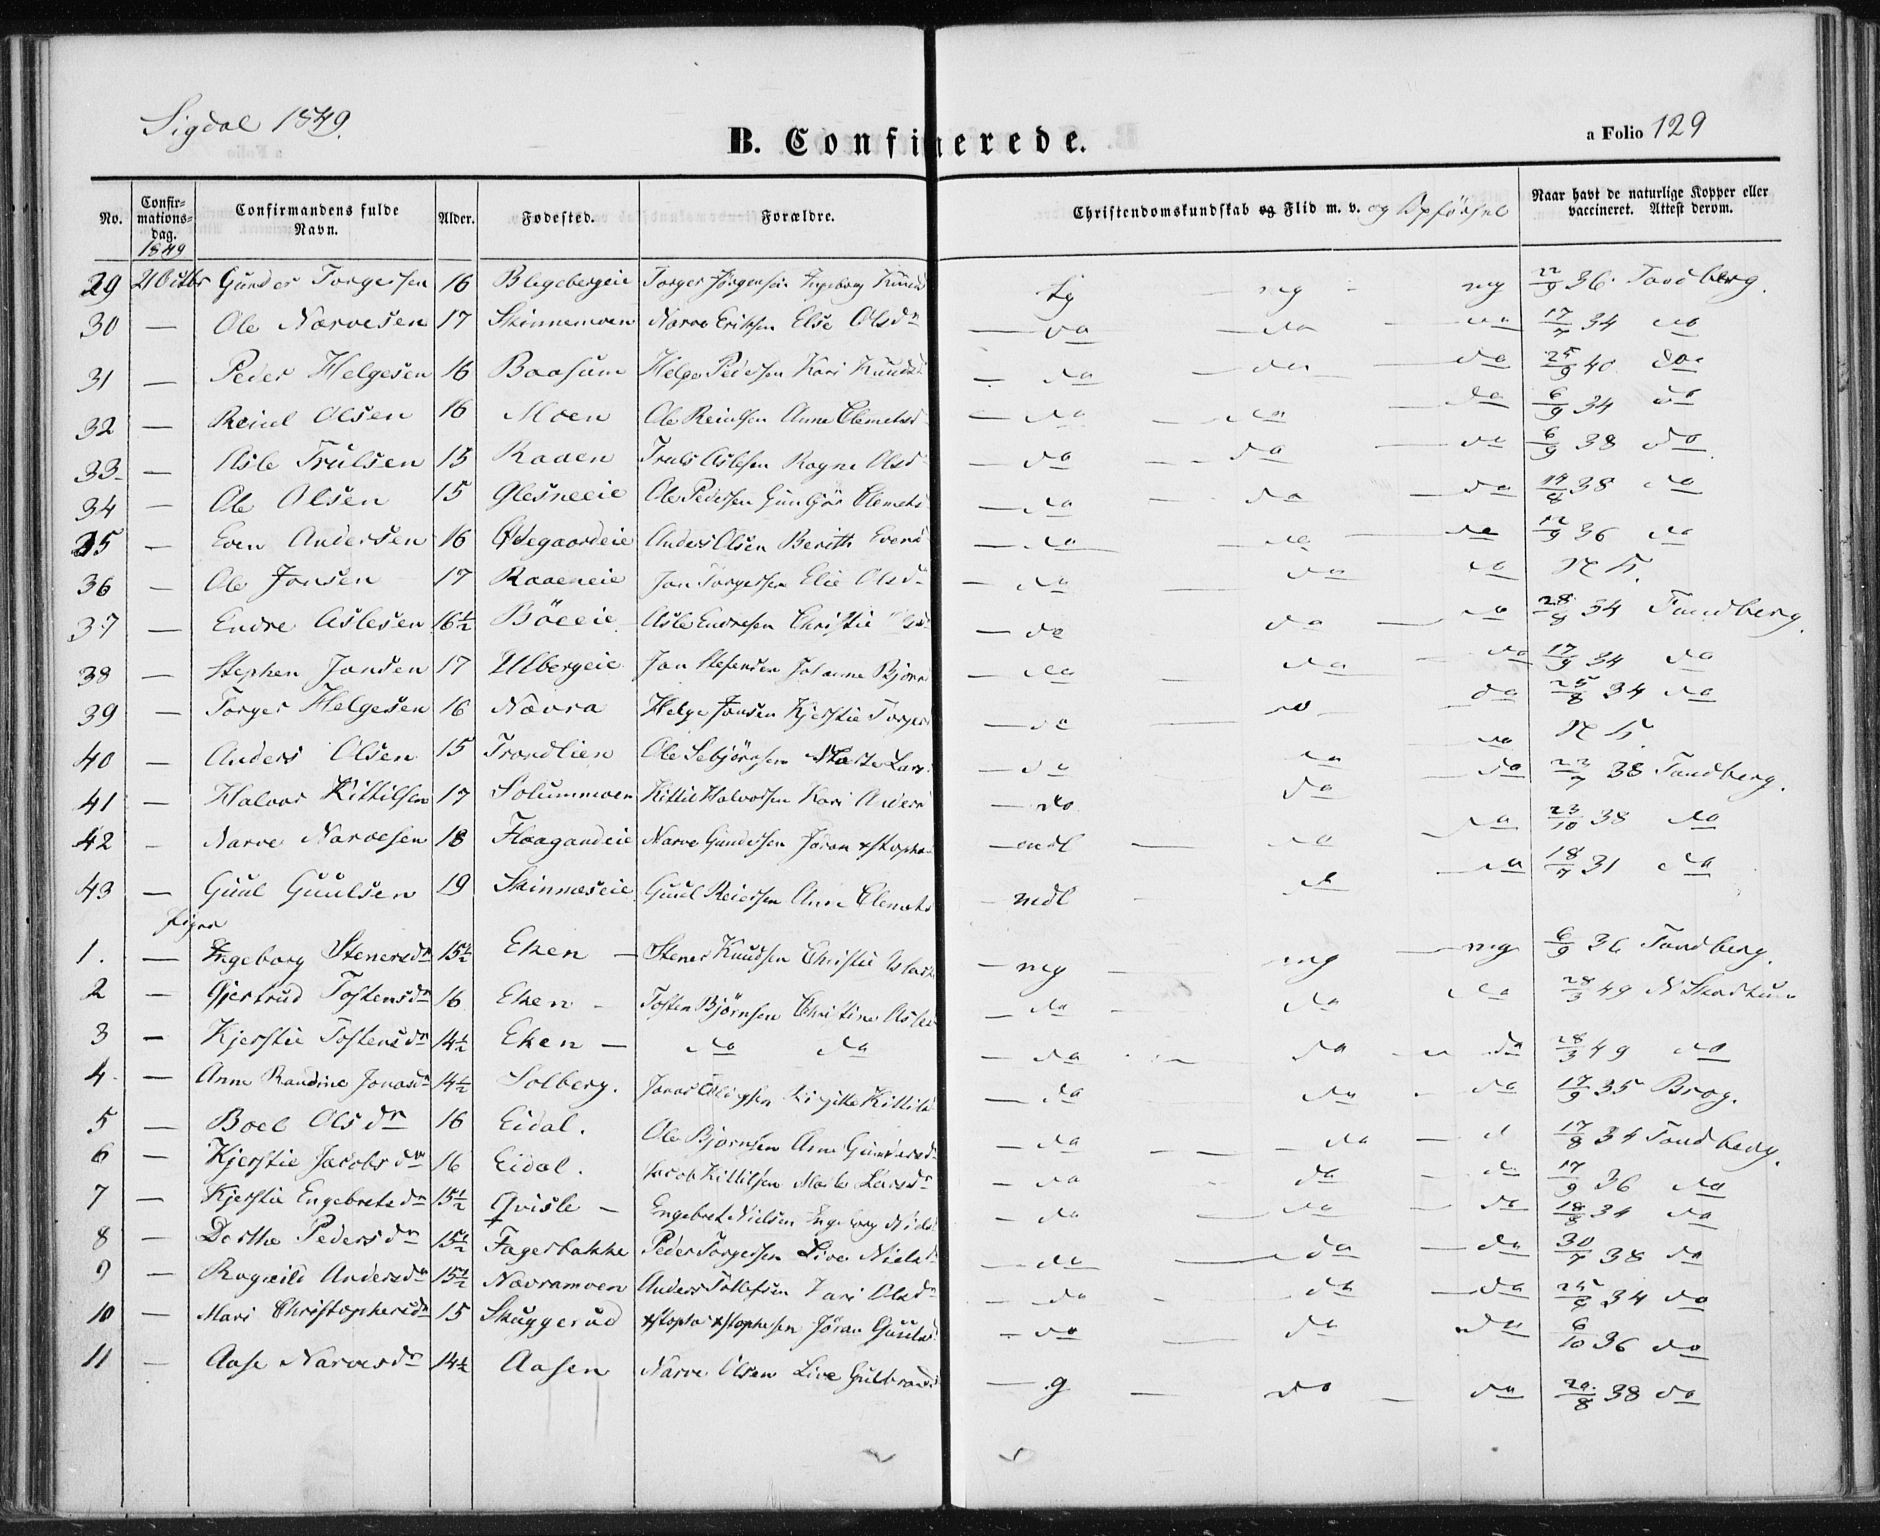 Sigdal 1849.
B. Confirmerede.
a Folio 129
No. Confirmationsdag. Confirmandens fulde Navn. Alder. Fødested. Forældre. Christendomskundskab og Flid m. v. og Opførsel Naar havt de naturlige Kopper eller vaccineret. Attest derom.
1849
29 21 Octbr Gunder Torgersen 16 Blegebergeie Torger Jörgensen Ingeborg tg mg mg 22/9 36 Tandberg.
30 — Ole Narvesen 17 Skinnemoen Narve Eriksen Else Olsdr — do — do — do 17/7 34 do
31 — Peder Helgesen 16 Baasum Helge Pedersen Kari Knudsd — do — do — do 25/9 40 do
32 — Reiul Olsen 16 Moen Ole Reiulsen Anne Clemetsd — do — do — do 6/9 34 do
33 — Asle Trulsen 15 Raaen Truls Aslesen Ragne Olsd — do — do — do 6/9 38 do
34 — Ole Olsen 15 Glesneeie Ole Pedersen Gunbjör Clemets — do — do — do 14/8 38 do
35 — Even Andersen 16 Ødegaardeie Anders Olsen Berith Evens — do — do — do 12/9 36 do
36 — Ole Jonsen 17 Raaeneie Jon Torgersen Elie Olsd — do do do N K.
37 — Endre Aslesen 16½ Böeeie Asle Endresen Christie — do do — do 28/8 34 Tandberg.
38 — Stephen Jonsen 17 Ulbergeie Jon Stefensen Johanne Bjørn — do do — do 17/9 34 do
39 — Torger Helgesen 16 Nævra Helge Jonsen Kjerstie Torgers — do — do — do 25/8 34 do
40 — Anders Olsen 15 Trondlien Ole Sebjörnsen Marte Lars — do do do N K.
41 — Halvor Kittilsen 17 Solummoen Kittil Halvorsen Kari Anders — do do — do 22/7 38 Tandberg.
42 — Narve Narvesen 18 Flaagandeie Narve Gundersen Jöran — mdl — do — do 23/10 38 do
43 — Guul Guulsen 19 Skinnæseie Guul Reiersen Anne Clemets — mdl do — do 18/7 31 do
Piger
1. — Ingeborg Stenersdr 15½ Eken — Stener Knudsen Christie — mg — mg — mg 6/9 36 Tandberg.
2 — Gjertrud Tostensdr 16 Eken — Tosten Björnsen Christine Asles — do — do do 28/3 49 N Skartum
3 — Kjerstie Tostensdr 14½ Eken — do do — do do do 28/3 49 do
4. — Anne Randine Jonasdr 14½ Solberg. Jonas Birgitte Kittils — do — do do 17/9 35 Brog.
5 — Boel Olsdr 16 Eidal. Ole Bjørnsen Anne Gundersd — do — do — d 17/8 34 Tandberg.
6 — Kjerstie Jacobsdr 16 Eidal. Jacob Kittilsen Marte Larsdr — do do — do 17/9 36 do
7 — Kjerstie Engebretsdr 15½ Qvisle — Engebret Nielsen Ingeborg Niels — do — do — do 18/8 34 do
8 — Dorthe Pedersdr 15½ Fagerbakke Peder Torgersen Live Nielsd — do — do — do 30/7 38 do
9 — Ragnild Andersdr 15½ Nævramoen Anders Tollefsen Kari Olsdr — do — do — do 25/8 34 do
10 — Mari Christophersdr 15 Skuggerud Xstopher Xstophersen Jöran Guuls — do — do do 6/10 36 do
11 — Aase Narvesdr 14½ Aasen Narve Olsen Live Gulbrands — g — do — do 20/8 38 do